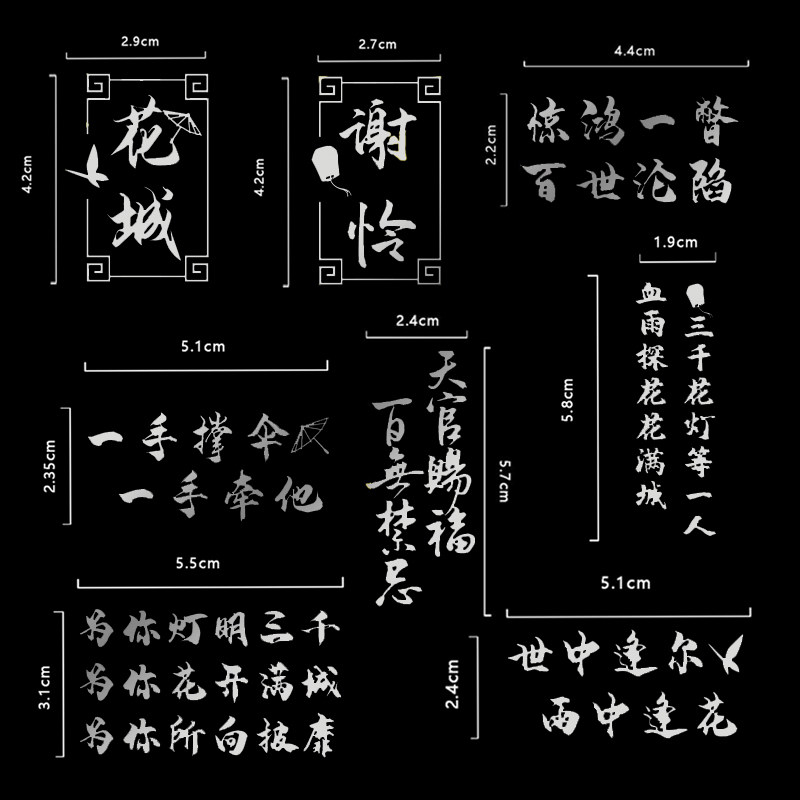 2.9cm
4.2cm
花城
2.7cm
4.2cm
谢怜
4.4cm
2.2cm
惊鸿一瞥
百世沦陷
1.9cm
5.8cm
三千花灯等一人
血雨探花花满城
5.1cm
2.35cm
一手撑伞
一手牵他
2.4cm
5.7cm
天官賜福
百無禁忌
5.5cm
3.1cm
为你灯明三千
为你花开满城
为你所向披靡
5.1cm
2.4cm
世中逢尔
雨中逢花